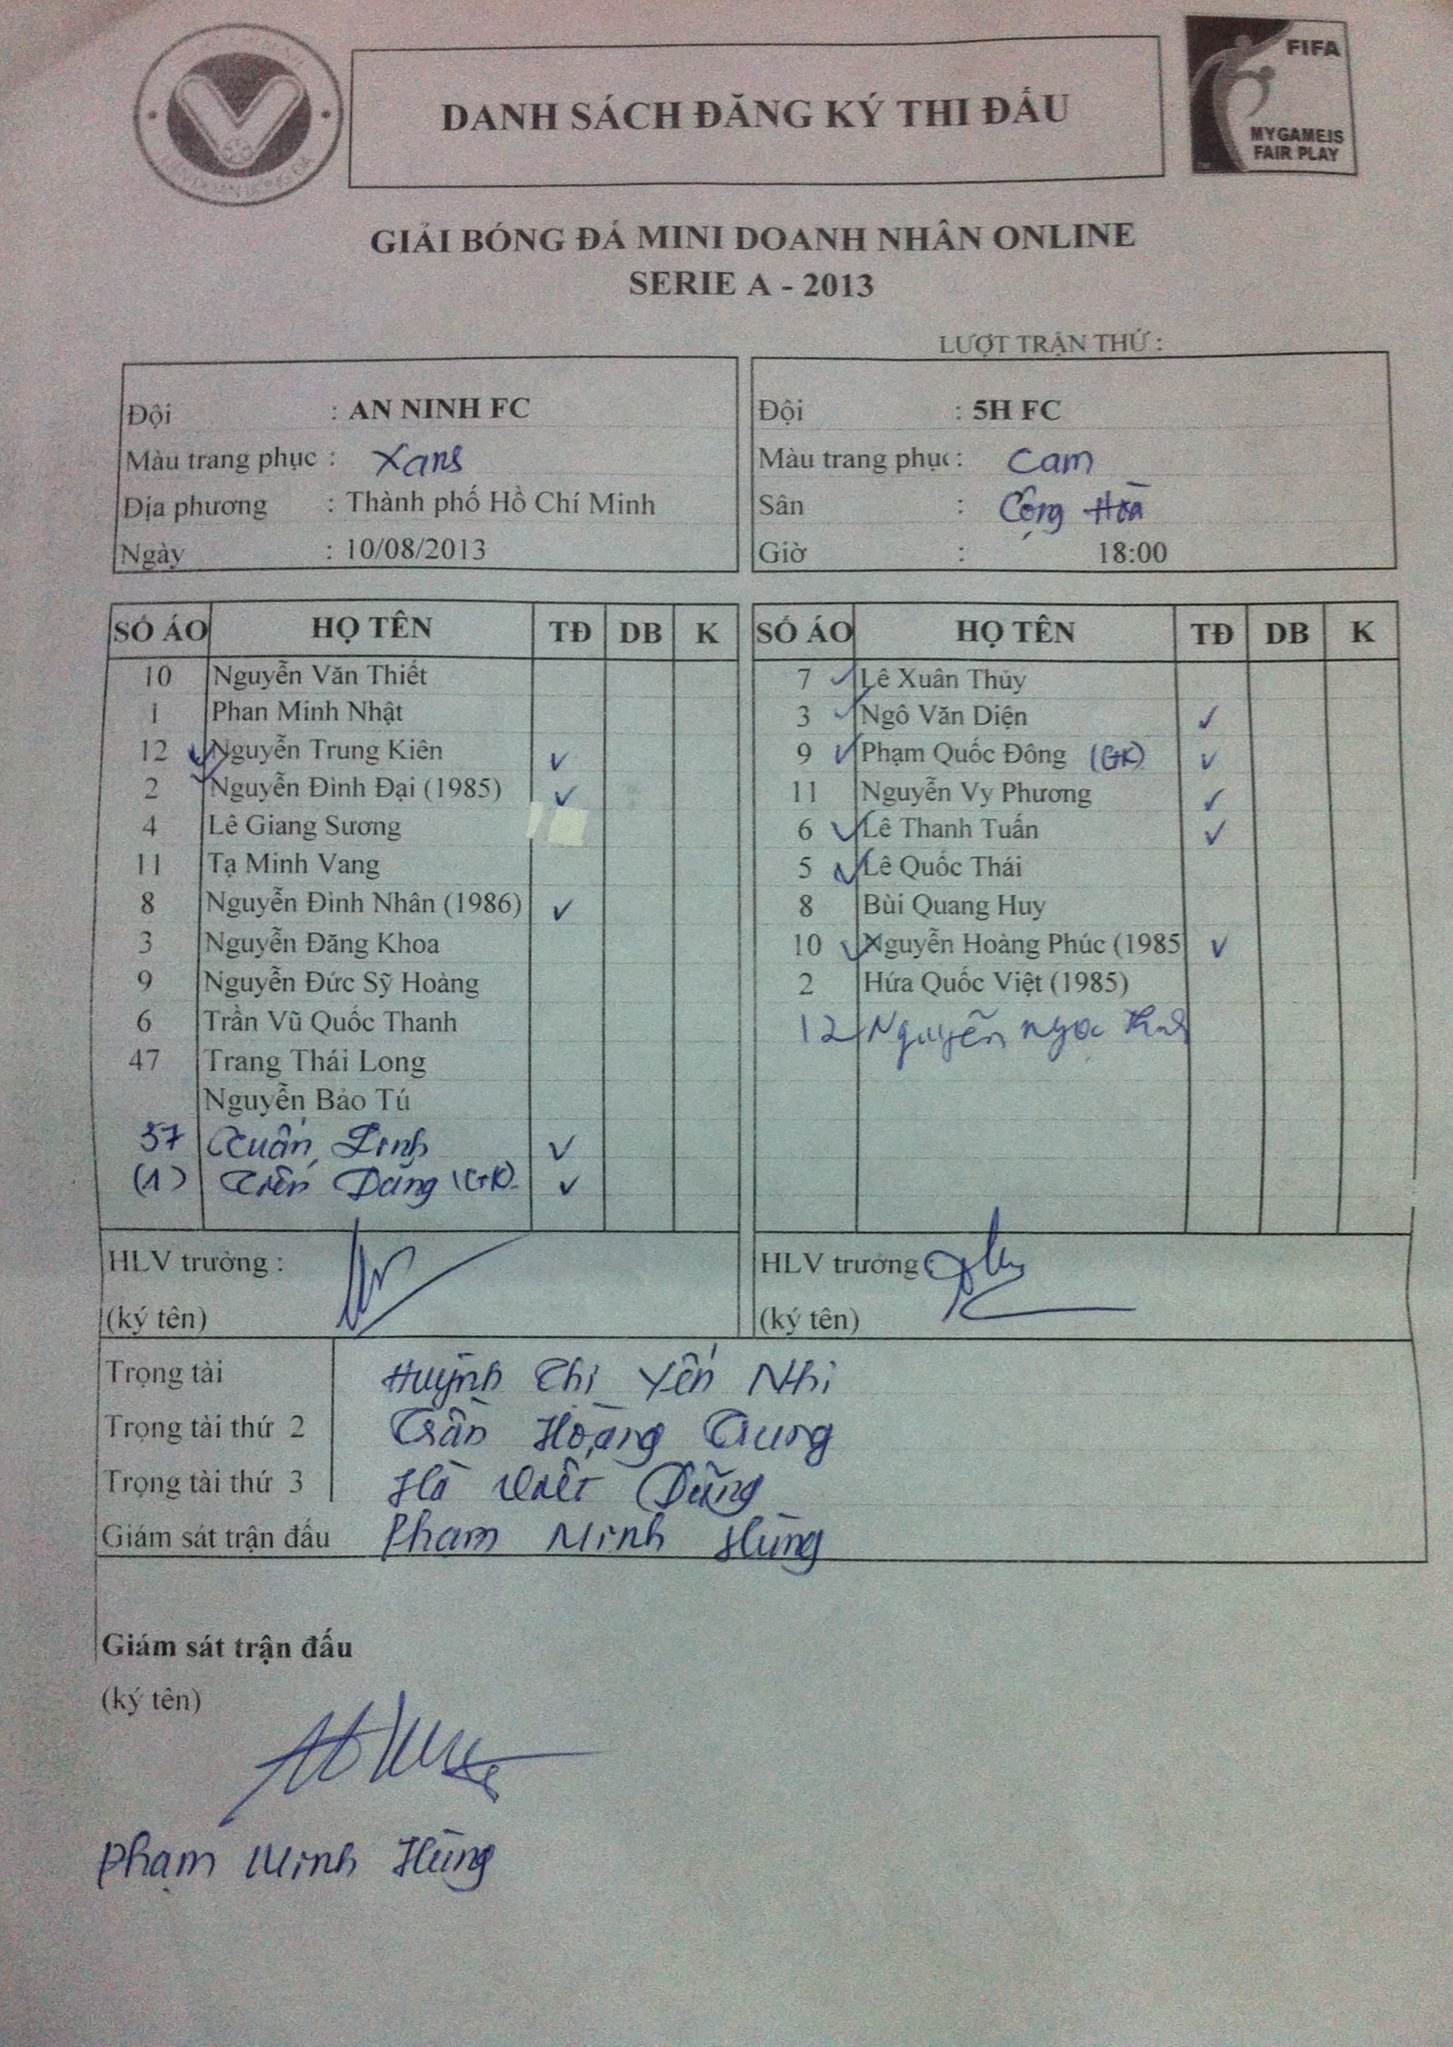 DANH SÁCH ĐĂNG KÝ THI ĐẤU
FIFA
MY GAME IS
FAIR PLAY
GIẢI BÓNG ĐÁ MINI DOANH NHÂN ONLINE
SERIE A - 2013
LƯỢT TRẬN THỨ :
Đội : AN NINH FC
Màu trang phục : Xanh
Địa phương : Thành phố Hồ Chí Minh
Ngày : 10/08/2013
Đội : 5H FC
Màu trang phục : Cam
Sân : Cộng Hòa
Giờ : 18:00
SỐ ÁO HỌ TÊN TĐ DB K
10 Nguyễn Văn Thiết
1 Phan Minh Nhật
12 ✓ Nguyễn Trung Kiên ✓
2 ✓ Nguyễn Đình Đại (1985) ✓
4 Lê Giang Sương
11 Tạ Minh Vang
8 Nguyễn Đình Nhân (1986) ✓
3 Nguyễn Đăng Khoa
9 Nguyễn Đức Sỹ Hoàng
6 Trần Vũ Quốc Thanh
47 Trang Thái Long
Nguyễn Bảo Tú
37 Xuân ✓
(1) Tiến Dũng (GK) ✓
HLV trưởng :
(ký tên)
SỐ ÁO HỌ TÊN TĐ DB K
7 ✓ Lê Xuân Thủy
3 ✓ Ngô Văn Diện ✓
9 ✓ Phạm Quốc Đông (GK) ✓
11 Nguyễn Vy Phương ✓
6 ✓ Lê Thanh Tuấn ✓
5 ✓ Lê Quốc Thái
8 Bùi Quang Huy
10 ✓ Nguyễn Hoàng Phúc (1985 ✓
2 Hứa Quốc Việt (1985)
12 Nguyễn Ngọc
HLV trưởng
(ký tên)
Trọng tài Huỳnh Thị Yến Nhi
Trọng tài thứ 2 Trần Hoàng Trung
Trọng tài thứ 3 Hà Việt Dũng
Giám sát trận đấu Phạm Minh Hùng
Giám sát trận đấu
(ký tên)
Phạm Minh Hùng